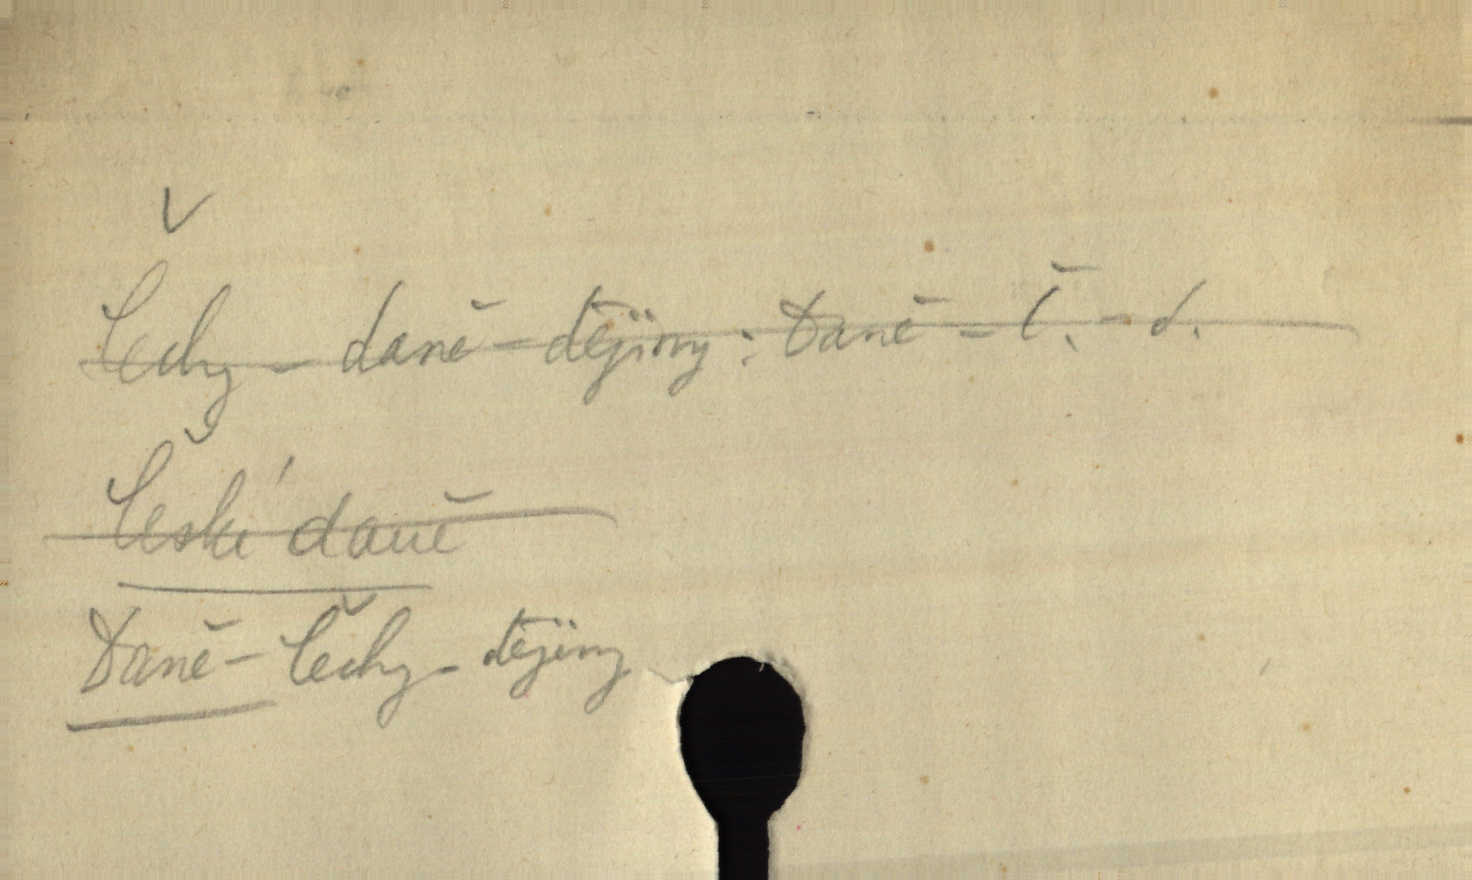 Čechy - daně - dějiny : Daně - Č. - d.
České daně
Daně - Čechy - dějiny